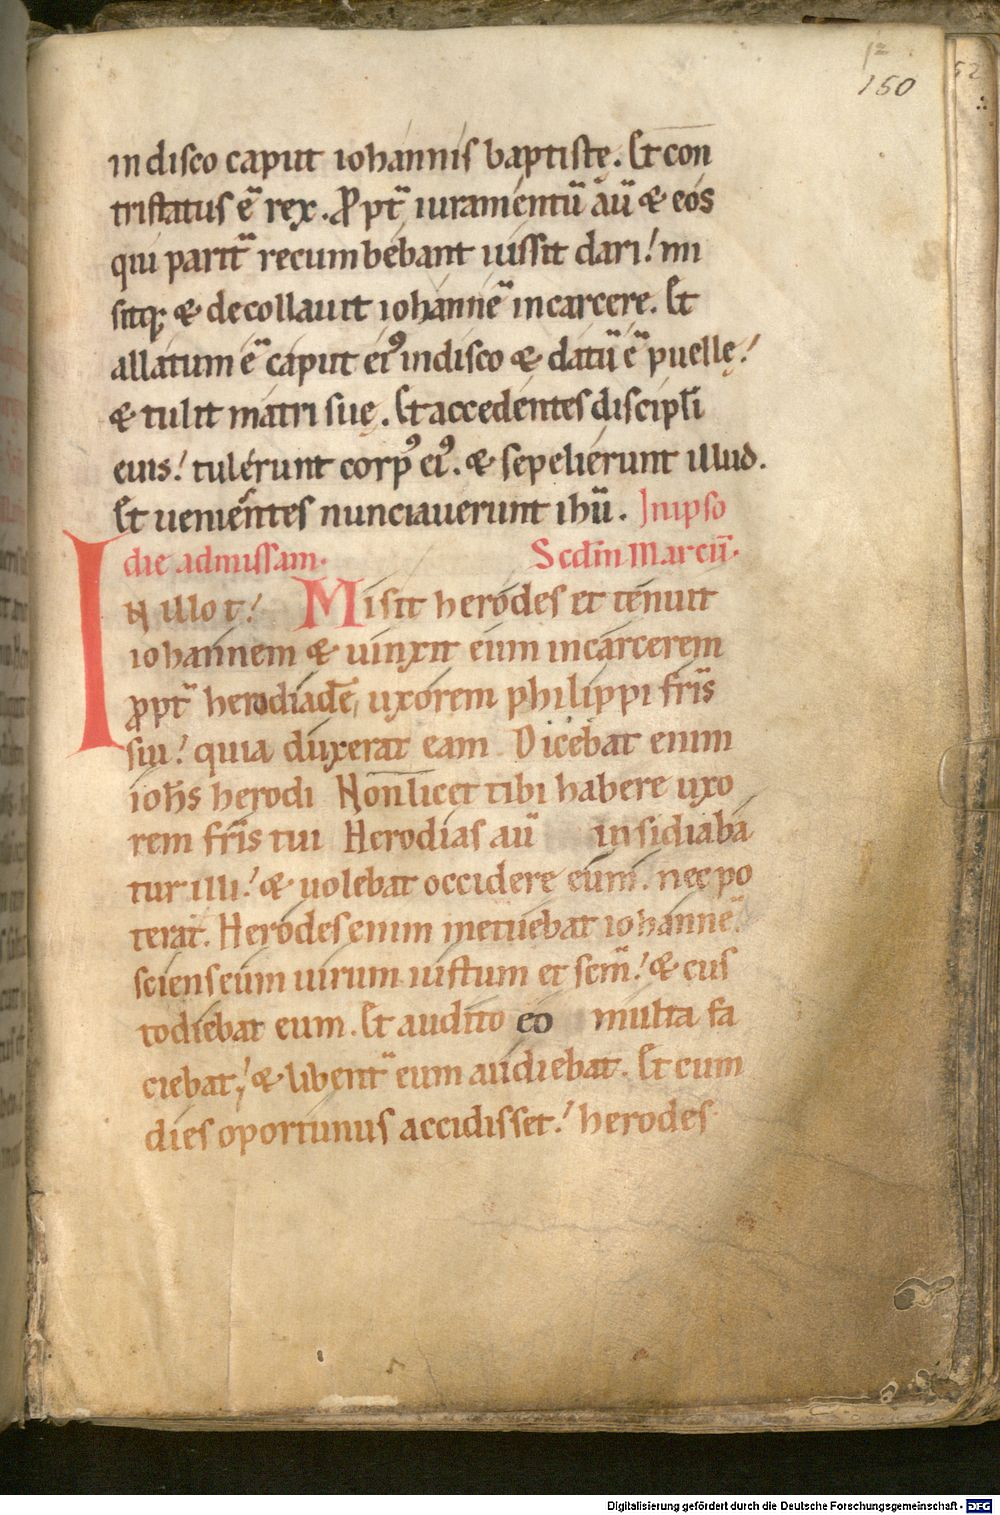 12
150
52
in disco caput iohannis baptistę. Et con
tristatus ē rex. ꝓpt̄ iuramentū aū & eos
qui parit̄ recumbebant iussit dari! mi
sitq; & decollauit iohannē in carcere. Et
allatum ē caput eiꝰ in disco & datū ē puellę!
& tulit matri suę. Et accedentes discipl̄i
euis! tulerunt corpꝰ eiꝰ. & sepelierunt illud.
Et uenientes nunciauerunt ihū. Inipso
die admissam. Scdm̄ Marcū.
IN illo t! Misit herodes et tenuit
iohannem & uinxit eum incarcerem
ꝓpt̄ herodiadē, uxorem philippi fr̄is
sui! quia duxerat eam Dicebat enim
ioh̄s herodi Non licet tibi habere uxo
rem fr̄is tui Herodias aū insidiaba
tur illi! & uolebat occidere eum. nec po
terat. Herodes enim metuebat iohannē!
sciens eum uirum iustum et scm̄! & cus
todiebat eum. Et audito eo multa fa
ciebat! & libent̄ eum audiebat. Et cum
dies oportunus accidisset! herodes
Digitalisierung gefördert durch die Deutsche Forschungsgemeinschaft - DFG